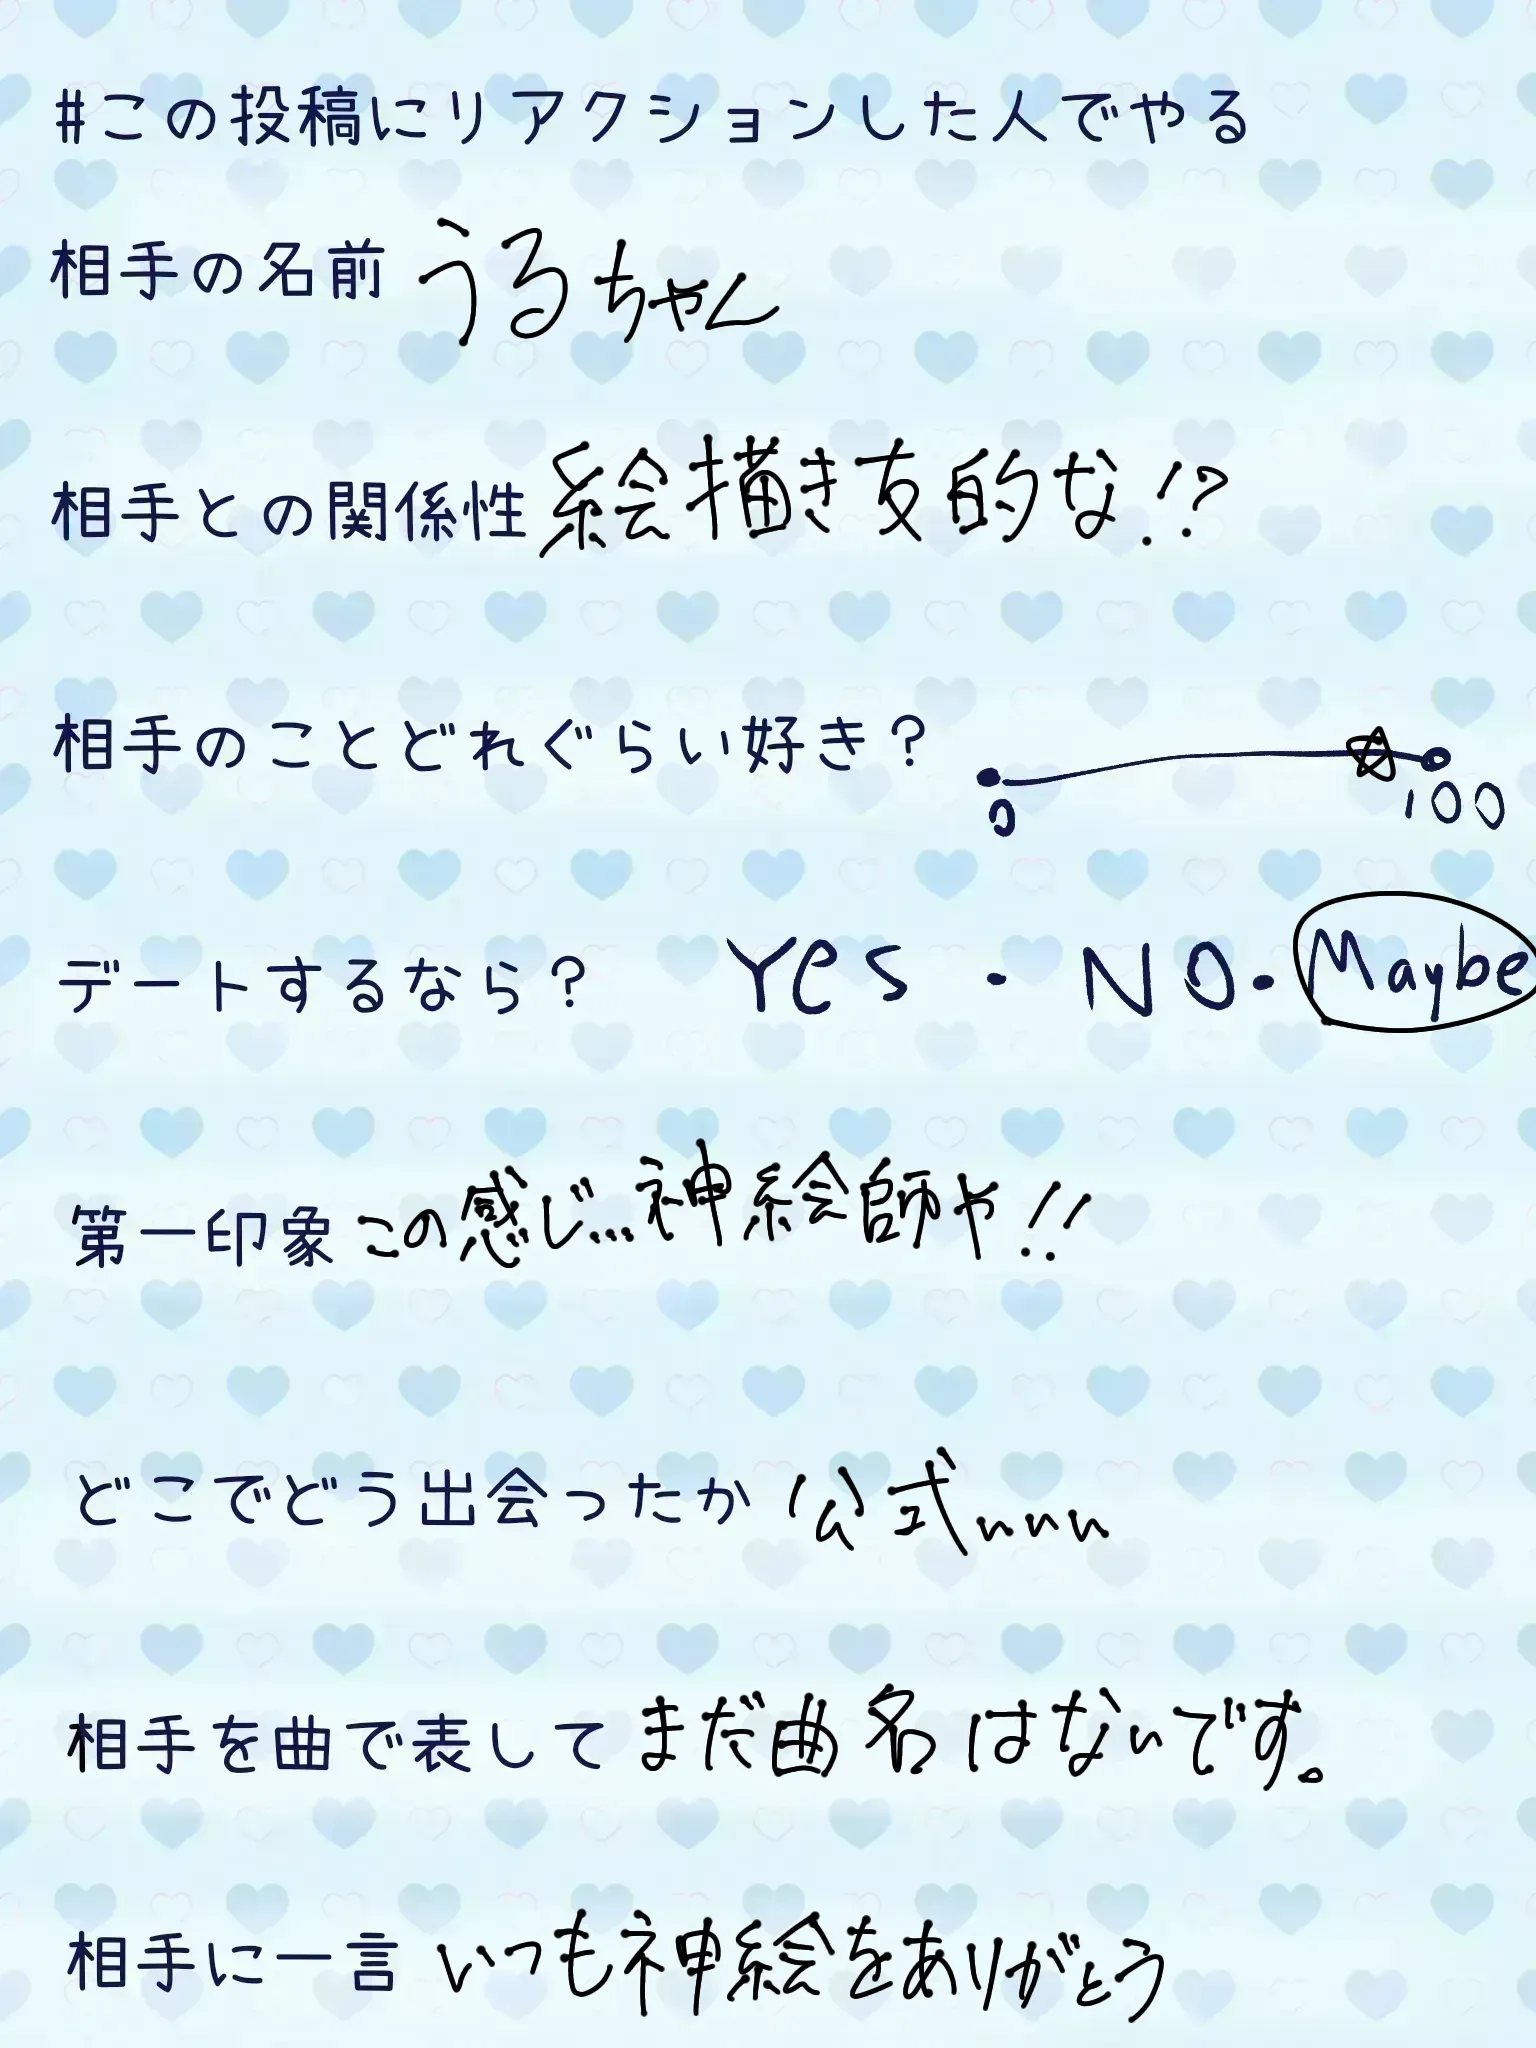 #この投稿にリアクションした人でやる
相手の名前 うるちゃん
相手との関係性 絵描き友的な!?
相手のことどれぐらい好き?
0 100
デートするなら? Yes・NO・Maybe
第一印象 この感じ...神絵師や!!
どこでどう出会ったか 公式いいい
相手を曲で表して まだ曲名はないです。
相手に一言 いつも神絵をありがとう